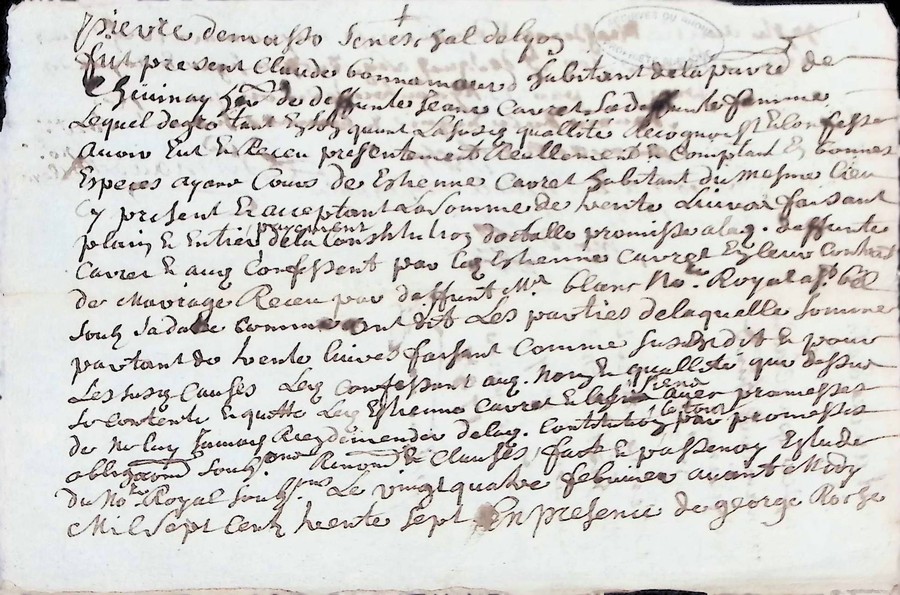 pierre demasso seneschal de lyon
fut present Claude bonnamour habitant de la parr.e de
de deffunte Jeanne Carret sa deffunte femme
Lequel degré tant en son que la susd. quallité Recognoist et confesse
avoir Eut et Receu presentement Reellement et Comptant En bonnes
Especes ayant Cours de Estienne Carret habitant du mesme Lieu
Cy present et acceptant La somme de trente Livres faisant
plain et Entier payement de la Constitution dotalle promise a lad. deffunte
Carret et aug. Confessent par led. Estienne Carret En leur Contract
de Mariage Receu par deffunt M.e blanc No.re Royal
soubz sa datte comme ont dit Les parties de laquelle somme
partant de trente Livres faisant comme susdit et pour
Les susd. Causes Led. Confessant aud. Nom et quallité que dessus
se contente et quitte Led. Estienne Carret et Les siens avec promesses
de Ne luy Jamais Rien demender de lad. Constitution par promesses
oblig. soubz. Renon. et Clauses fait et passé En Estude
du No.re Royal soubz.né Le vingt quatre febvrier avant Midy
Mil sept Cent trente sept En presence de george Roche